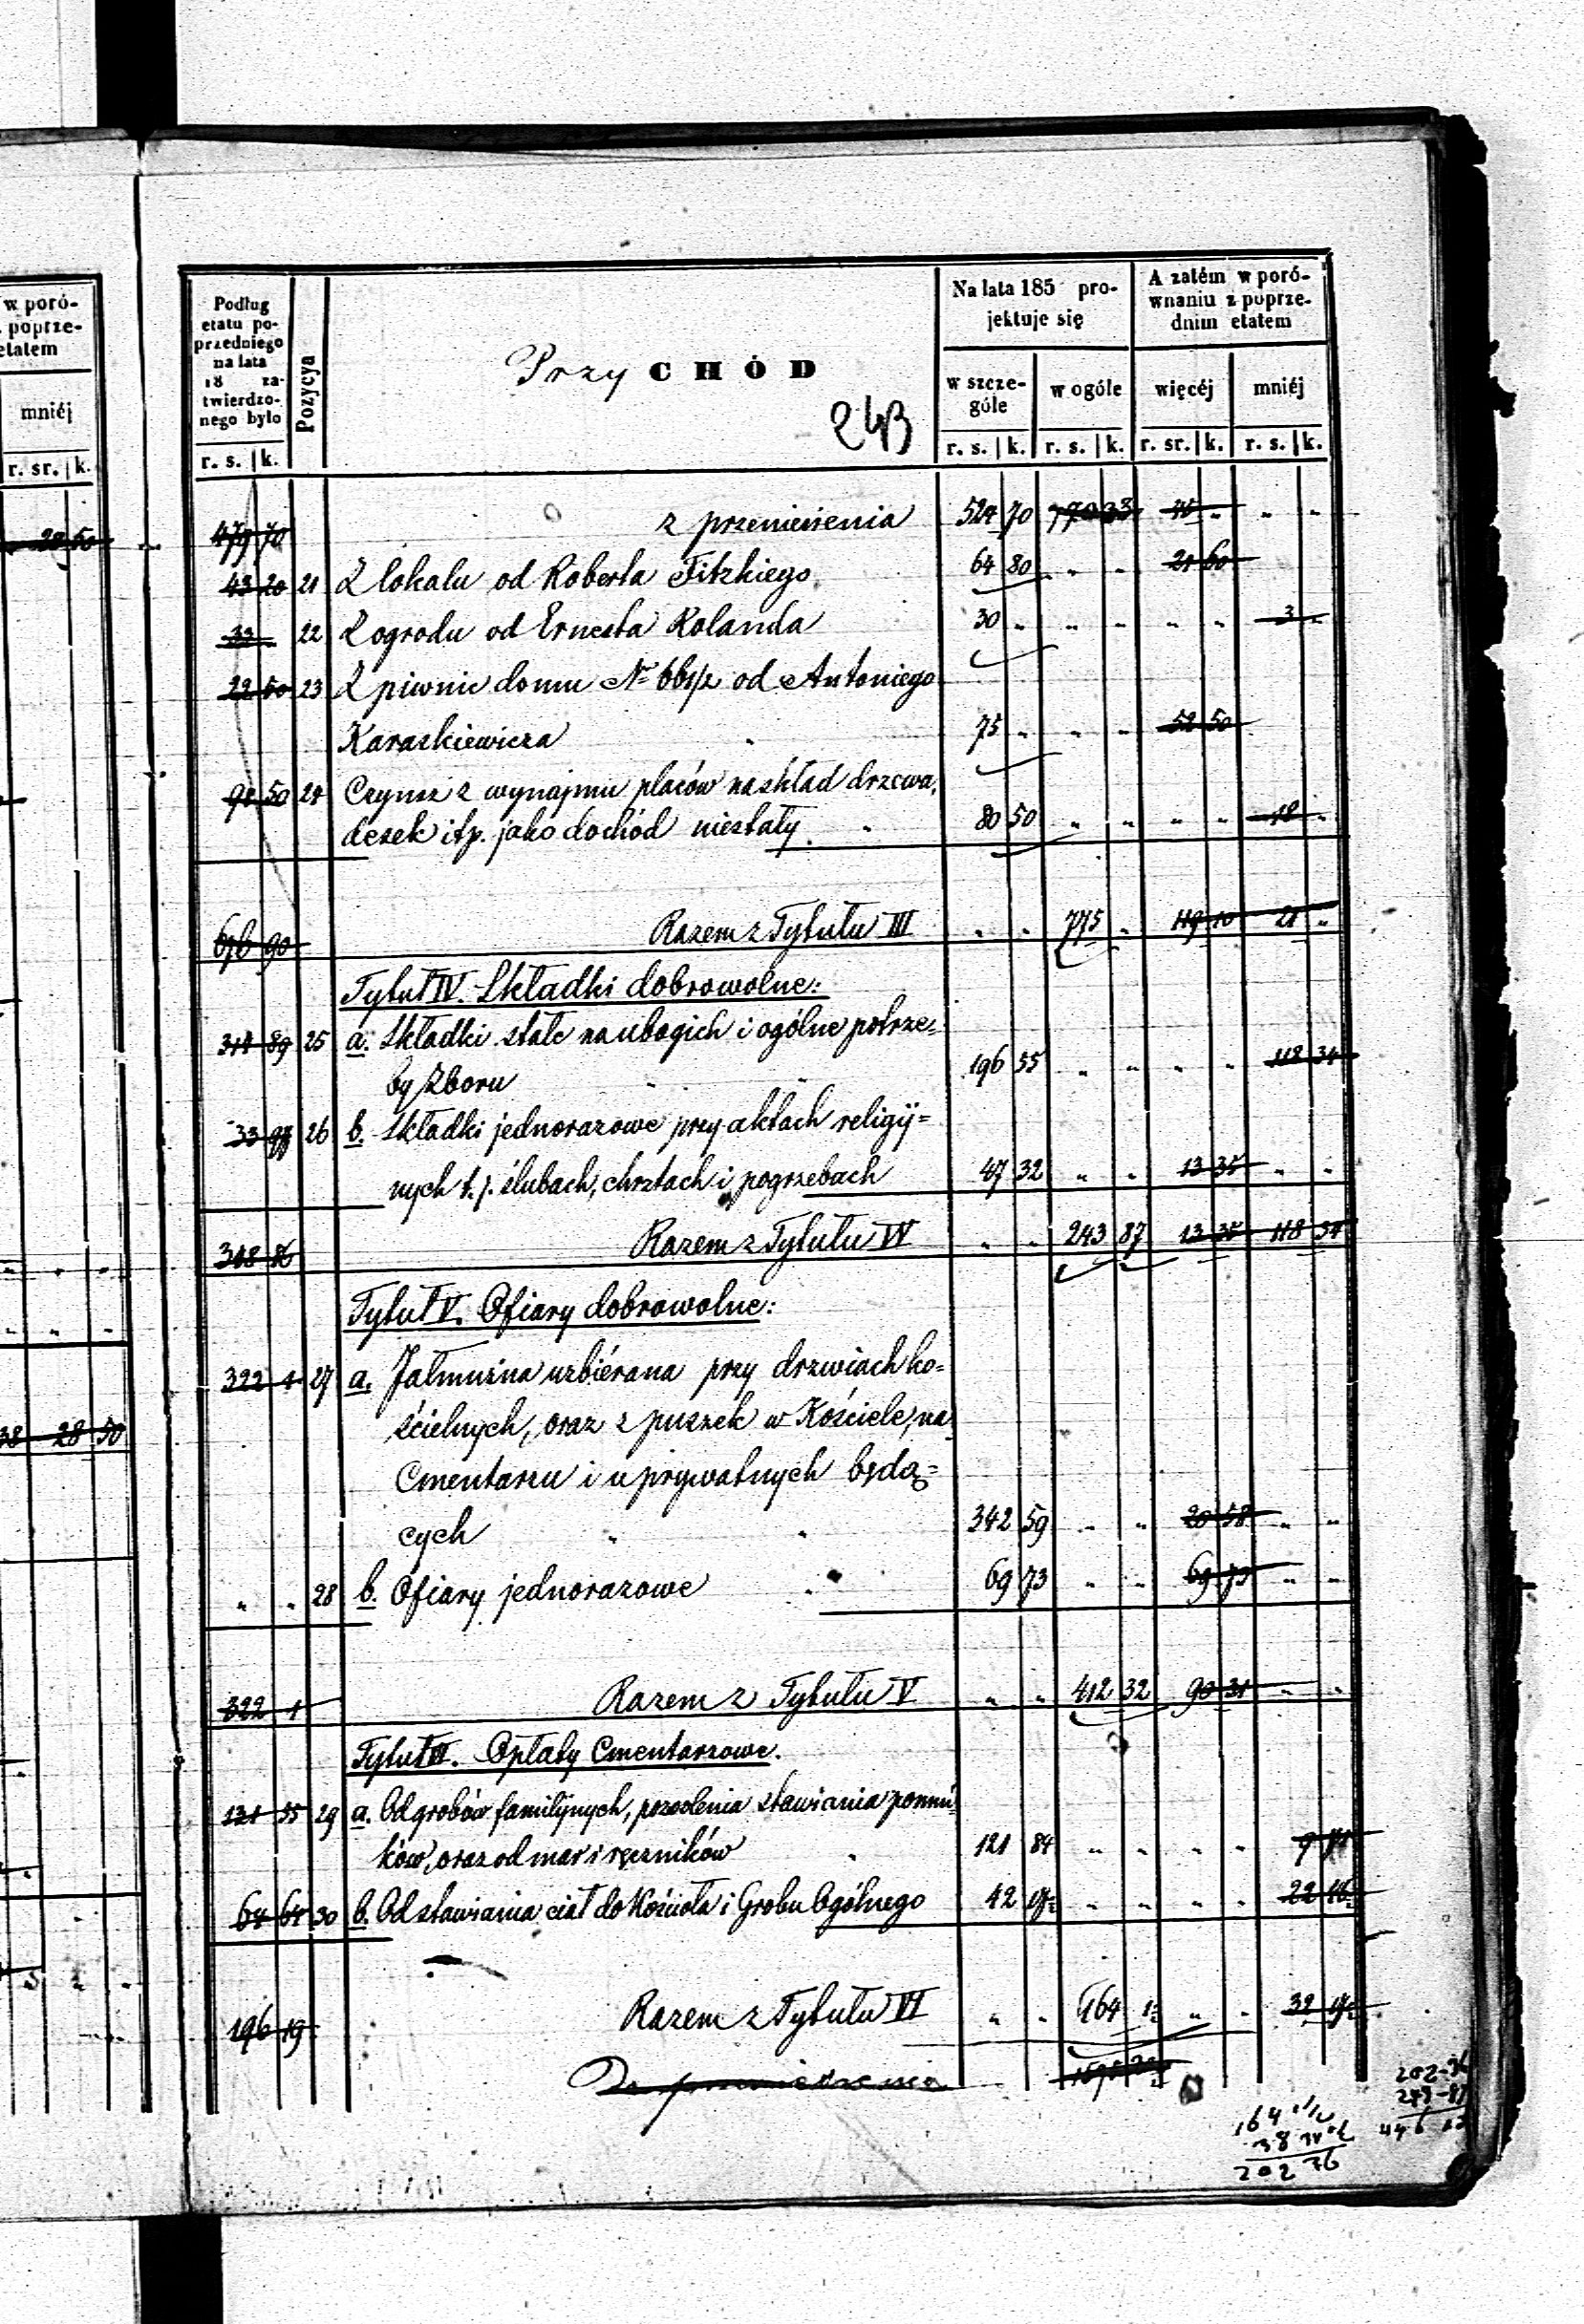 w poró-
poprze-
etatem
mniéj
r. sr. k.
28 50
38 28 50
Podług etatu poprzedniego na lata 18 zatwierdzonego było
r. s. k.
Pozycya
Przy CHÓD
243
Na lata 185 projektuje się
w szczególe
w ogóle
r. s. k. r. s. k.
A zatém w porównaniu z poprzednim etatem
więcéj
mniéj
r. sr. k. r. s. k.
479 70 z przeniesienia 524 70 770 33 45 " " "
43 20 21 Z lokalu od Roberta Fitzkiego 64 80 " " 21 60
33 22 Z ogrodu od Ernesta Rolanda 30 " " " " " 3 "
22 50 23 Z piwnic domu No 661/2 od Antoniego
Karaskiewicza " 75 " " " 52 50
98 50 24 Czynsz z wynajmu placów na skład drzewa,
desek itp. jako dochód niestały " 80 50 " " " " 18 "
676 90 Razem z Tytułu III " " 775 " 119 10 21 "
Tytuł IV. Składki dobrowolne:
314 89 25 a. Składki stałe na ubogich i ogólne potrze=
by Zboru " " 196 55 " " " " 118 34
33 97 26 b. Składki jednorazowe przy aktach religij=
nych t. j. ślubach, chrztach i pogrzebach 47 32 " " 13 35 " "
348 86 Razem z Tytułu IV " " 243 87 13 35 118 34
Tytuł V. Ofiary dobrowolne:
322 1 27 a. Jałmużna uzbiérana przy drzwiach ko=
ścielnych, oraz z puszek w Kościele, na
Cmentarzu i u prywatnych będą=
cych " " 342 59 " " 20 58 " "
" " 28 b. Ofiary jednorazowe " 69 73 " " 69 73 " "
322 1 Razem z Tytułu V " " 412 32 90 31 " "
Tytuł VI. Opłaty Cmentarzowe.
131 55 29 a. Od grobów familijnych, pozwolenia stawiania pomni=
ków, oraz od mar i ręczników " 121 84 " " " " 9 71
64 64 30 b. Od stawiania ciał do Kościoła i Grobu Ogólnego 42 " " " " 22
196 19 Razem z Tytułu VI " " 164 " " 32
Do przeniesienia
164
38
202 76
243-87
446